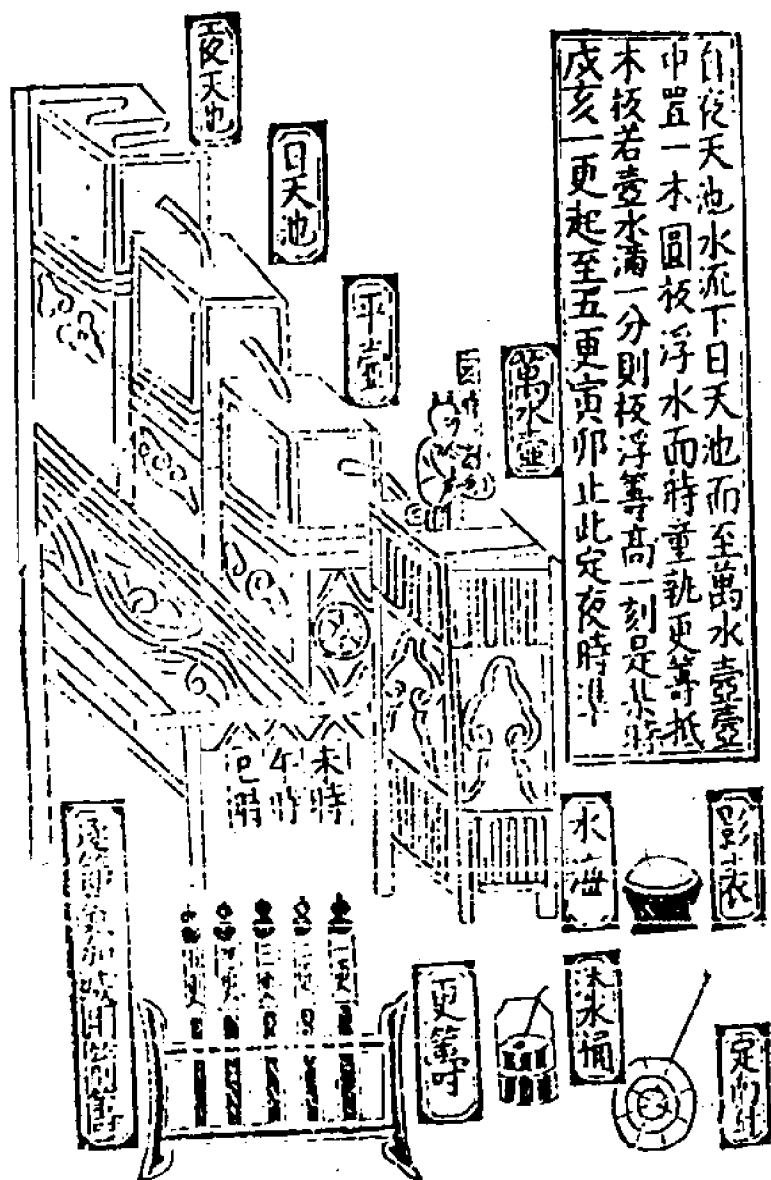 自夜天池水流下日天池而至萬水壺壺
中置一木圓板浮水而時童執更籌抵
木板若壺水滿一分則板浮籌高一刻是
戍亥一更起至五更寅卯止此定夜時
夜天池
日天池
平壺
萬水壺
未時
午時
巳時
影表
水海
水桶
更籌
一更